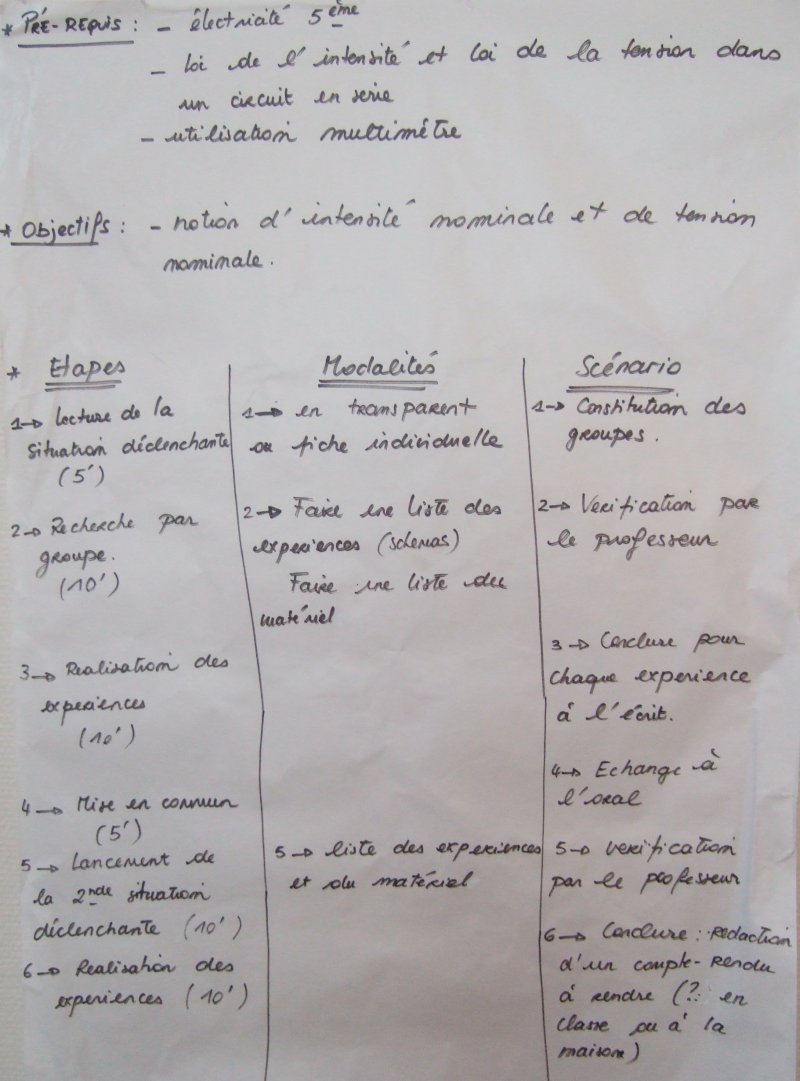 * PRÉ-REQUIS : - électricité 5ème
- loi de l'intensité et loi de la tension dans
un circuit en serie
- utilisation multimétre
* Objectifs : - notion d'intensité nominale et de tension
nominale.
* Etapes
1→ Lecture de la
situation déclenchante
(5')
2→ Recherche par
groupe.
(10')
3→ Realisation des
experiences
(10')
4→ Mise en commun
(5')
5→ Lancement de
la 2nde situation
déclenchante (10')
6→ Realisation des
experiences (10')
Modalités
1→ en transparent
ou fiche individuelle
2→ Faire une liste des
experiences (schemas)
Faire une liste du
matériel
5→ liste des experiences
et du matériel
Scénario
1→ Constitution des
groupes.
2→ Verification par
le professeur
3→ Conclure pour
chaque experience
à l'écrit.
4→ Echange à
l'oral
5→ verification
par le professeur
6→ Conclure : redaction
d'un compte-rendu
à rendre (? en
classe ou à la
maison)